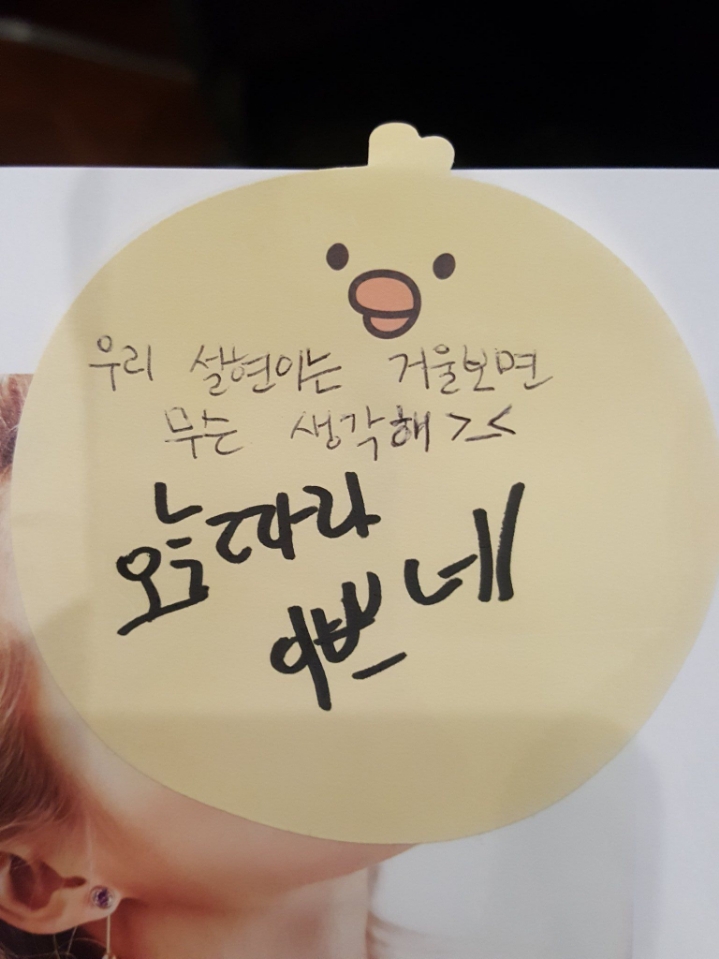 우리 설현이는 거울보면
무슨 생각해 >_<
오늘따라
이쁘네